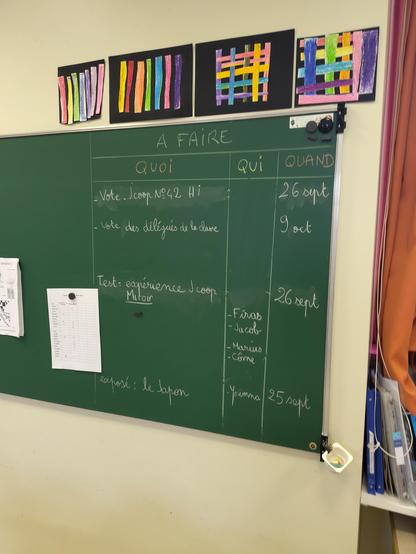 A FAIRE
QUOI QUI QUAND
- Vote. Jcoop N°42 Hi 26 sept
- vote des délégués de la classe 9 oct
Test: expérience Jcoop 26 sept
Mitoir
- Firas
- Jacob
- Marius
- Côme
exposé: le Japon - Yoomna 25 sept